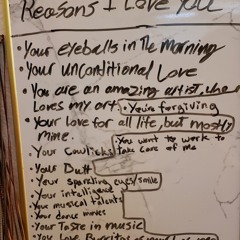 Reasons I Love You
• Your eyeballs in the morning
• Your unconditional Love
• You are an amazing artist, who
loves my art • You're forgiving
• Your love for all life, but mostly
mine. • You want to work to
• Your Cowlicks take care of me
• Your Butt
• Your sparkling eyes/smile
• Your intelligence
• Your musical talents
• Your dance moves
• Your Taste in music
• You love Burritos as much as